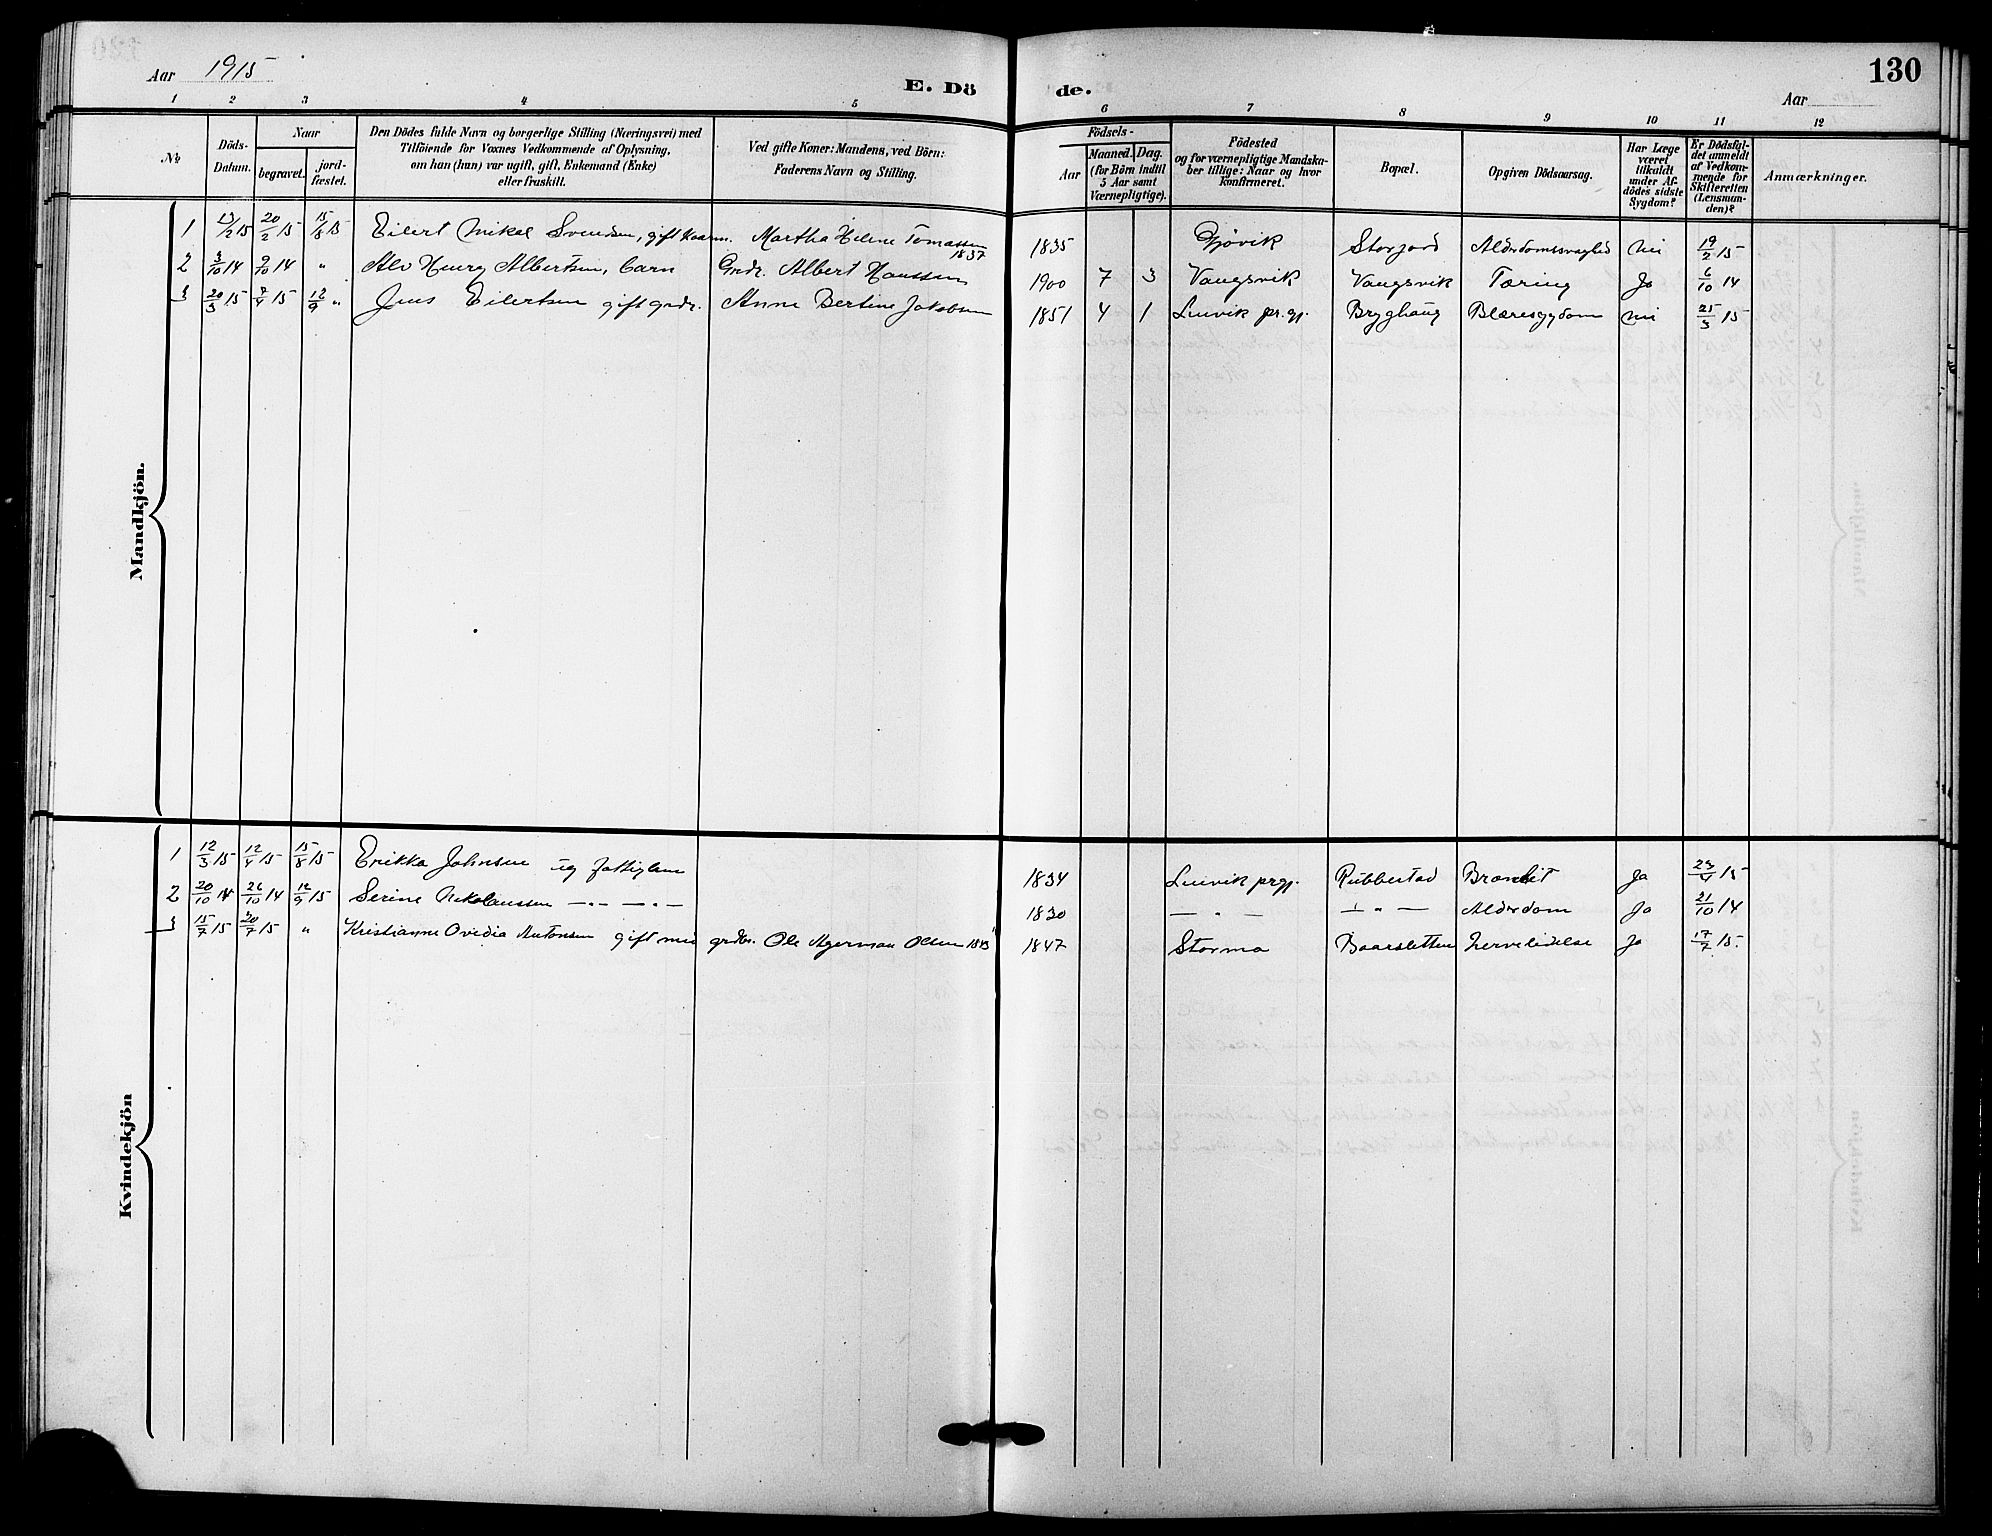 Aar 1915
E. Dö
de.
130
Aar
1 2 3 4 5 6 7 8 9 10 11 12
№
Döds-Datum.
Naar
begravet.
jord-fæstet.
Den Dödes fulde Navn og borgerlige Stilling (Næringsvei) med
Tilföiende for Voxnes Vedkommende af Oplysning,
om han (hun) var ugift, gift, Enkemand (Enke)
eller fraskilt.
Ved gifte Koner: Mandens, ved Börn:
Faderens Navn og Stilling.
Födsels-
Aar
Maaned. Dag.
(for Börn indtil
5 Aar samt
Værnepligtige).
Födested
og for værnepligtige Mandska-
ber tillige: Naar og hvor
konfirmeret.
Bopæl.
Opgiven Dödsaarsag.
Har Læge
været
tilkaldt
under Af-
dödes sidste
Sygdom?
Er Dödsfal-
det anmeldt
af Vedkom-
mende for
Skifteretten
(Lensman-
den)?
Anmærkninger.
Mandkjön.
1 13/2 15 20/2 15 15/8 15 Eilert Mikal Svendsen, gift Martha Helene Tomassen 1837 1835 Gjövik Storjord Alderdomssvaghed nei 19/2 15
2 3/10 14 9/10 14 " Alv Henry Albertsen, barn Gndr. Albert Hanssen 1900 7 3 Vangsvik Vangsvik Tæring Ja 6/10 14
3 20/3 15 7/4 15 12/9 " Jens Eilertsen gift gndr. Anne Bertine Jakobsen 1851 4 1 Lenvik pr.gj. Bryghaug Blæresygdom nei 25/3 15
Kvindekjön
1 12/3 15 12/4 15 15/8 15 Erikka Johnsen ug fattiglem 1834 Lenvik prgj. Rubbestad Ja 15
2 20/10 14 26/10 14 12/9 15 Serine Nikolaussen — " — — " — 1830 — " — — " — Alderdom Ja 21/10 14
3 15/7 15 20/7 15 " Kristianne Ovedia Antonsen gift med grdbr. Ole Olsen 1843 1847 Stormo Baarsletten Nervelidelse Ja 17/7 15.